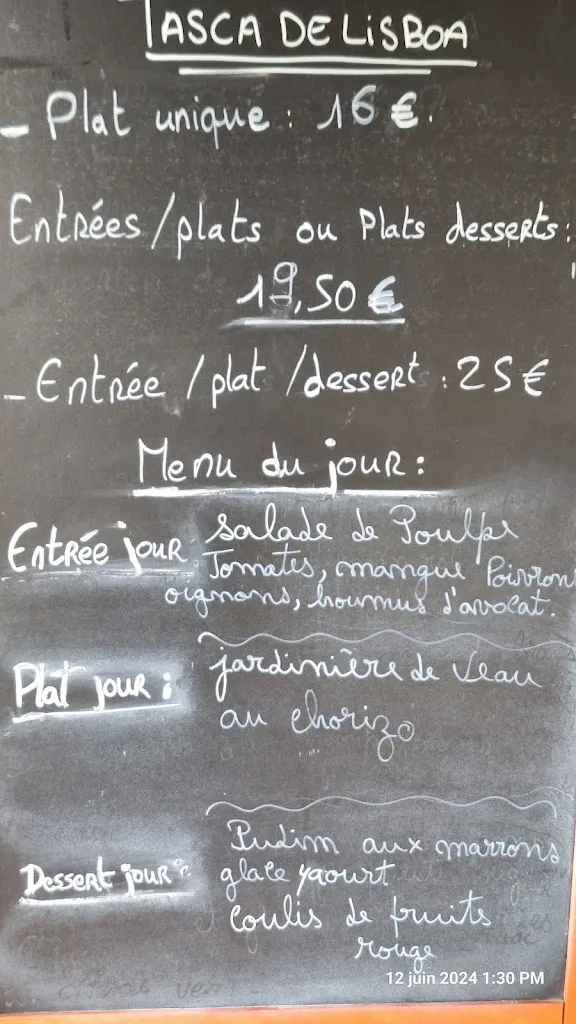 TASCA DE LISBOA
- Plat unique : 16 €.
Entrées/plats ou Plats desserts :
19,50 €
- Entrée / plat / dessert : 25 €
Menu du jour :
Entrée jour salade de Poulpe
Tomates, mangue Poivrons
oignons, houmus d'avocat.
Plat jour : jardinière de veau
au chorizo
Dessert jour : Pudim aux marrons
glace yaourt
coulis de fruits
rouge
12 juin 2024 1:30 PM